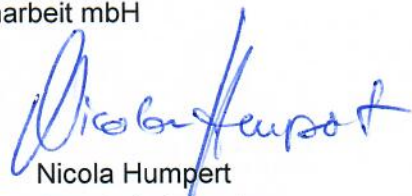 narbeit mbH
Nicola Humpert
Nicola Humpert